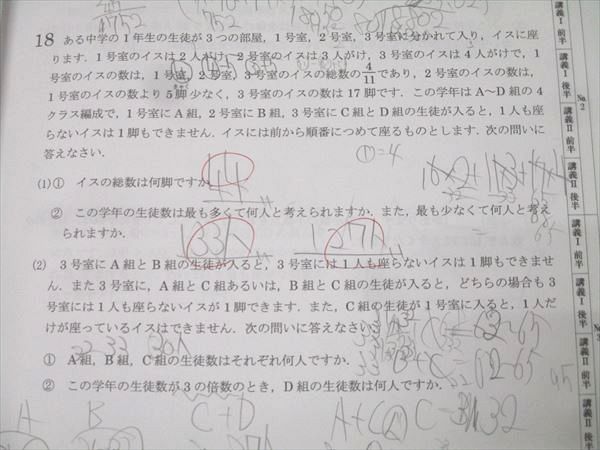 18 ある中学の1年生の生徒が3つの部屋，1号室，2号室，3号室に分かれて入り，イスに座
ります．1号室のイスは2人がけ，2号室のイスは3人がけ，3号室のイスは4人がけで，1
号室のイスの数は，1号室，2号室，3号室のイスの総数の4/11であり，2号室のイスの数は，
1号室のイスの数より5脚少なく，3号室のイスの数は17脚です．この学年はA〜D組の4
クラス編成で，1号室にA組，2号室にB組，3号室にC組とD組の生徒が入ると，1人も座
らないイスは1脚もできません．イスには前から順番につめて座るものとします．次の問いに
答えなさい．
①=4
(1)① イスの総数は何脚ですか
44
② この学年の生徒数は最も多くて何人と考えられますか．また，最も少なくて何人と考え
られますか．
133人
127人
(2) 3号室にA組とB組の生徒が入ると，3号室には1人も座らないイスは1脚もできませ
ん．また3号室に，A組とC組あるいは，B組とC組の生徒が入ると，どちらの場合も3
号室には1人も座らないイスが1脚できます．また，C組の生徒が1号室に入ると，1人だ
けが座っているイスはできません．次の問いに答えなさい．
32 33 30人
① A組，B組，C組の生徒数はそれぞれ何人ですか．
② この学年の生徒数が3の倍数のとき，D組の生徒数は何人ですか．
A B C+D
講義Ⅰ 前半
講義Ⅰ 後半
No.2
講義Ⅱ 前半
講義Ⅱ 後半
講義Ⅰ 前半
講義Ⅰ 後半
講義Ⅱ 前半
講義Ⅱ 後半